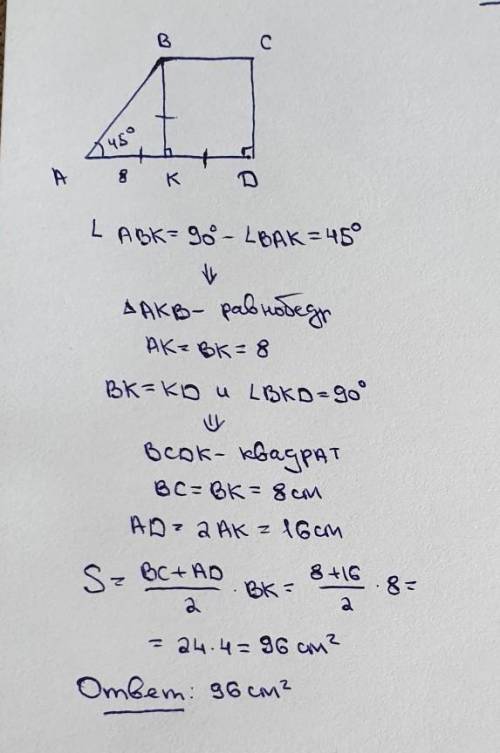 B C
45°
A 8 K D
∠ ABK = 90° - ∠BAK = 45°
⇓
ΔAKB - равнобедр
AK = BK = 8
BK = KD и ∠BKD = 90°
⇓
BCDK - квадрат
BC = BK = 8 см
AD = 2AK = 16 см
S = (BC + AD)/2 · BK = (8+16)/2 · 8 =
= 24 · 4 = 96 см²
Ответ: 96 см²